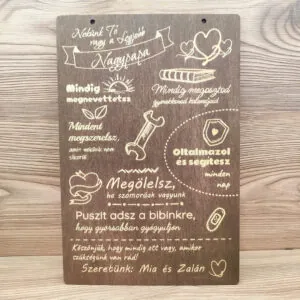 Nekünk Te
vagy a Legjobb
Nagypapa
Mindig
megnevettetsz
Mindig megosztod
gyerekkorod kalandjait
Mindent
megszerelsz,
amit nekünk nem
sikerül
Oltalmazol
és segítesz
minden nap
Megölelsz,
ha szomorúak vagyunk
Puszit adsz a bibinkre,
hogy gyorsabban gyógyuljon
Köszönjük, hogy mindig ott vagy, amikor
szükségünk van rád!
Szeretünk: Mia és Zalán